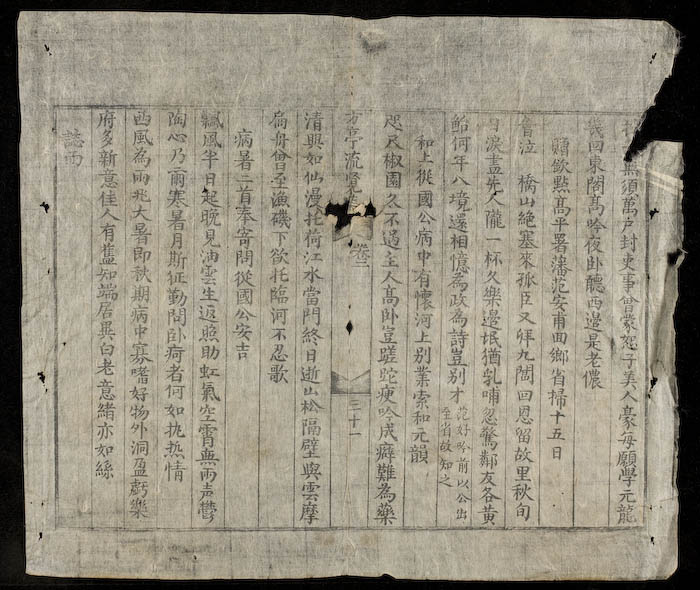 無須萬戸封吏事曾蒙恕子美人豪每願學元龍
幾回東閣髙吟夜卧聽西邊是老儂
贈欽點髙平署藩范安甫回鄉省掃十五日
會泣橋山絶塞來孤臣又拜九閽回恩留故里秋旬
日淚盡先人隴一杯久樂邊氓猶乳哺忽驚鄰友各黄
鮐何年八境還相憶為政為詩豈别才范好吟前以公出
至省故知之
和上從國公病中有懷河上别業索和元韻
咫尺椒園久不過主人髙卧豈蹉跎瘦吟成癖難為藥
方亭流覽 卷三 三十一
清興如仙漫托荷江水當門終日逝山松隔壁與雲摩
扁舟曾至漁磯下欲托臨河不忍歌
病暑二首奉寄問從國公安吉
飄風半日起晚見油雲生返照助虹氣空霄無雨声鬱
陶心乃爾寒暑月斯征勤問卧疴者何如抛熱情
西風為雨兆大暑即秋期病中寡嗜好物外洞盈虧樂
府多新意佳人有舊知端居異白老意緒亦如絲
誌雨